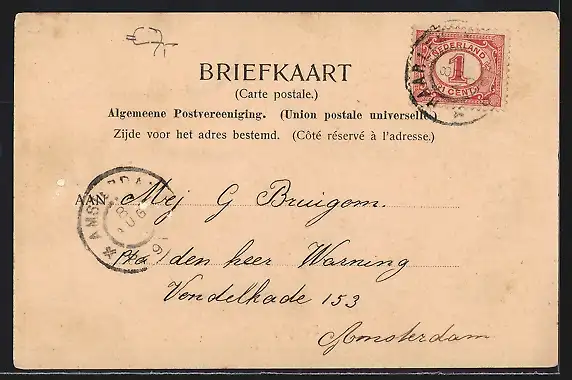 €7,-
BRIEFKAART
(Carte postale.)
Algemeene Postvereeniging. (Union postale universelle)
Zijde voor het adres bestemd. (Côté réservé à l'adresse.)
NEDERLAND
1
CENT
HAAR
AMSTERDA
AUG
AAN Mej G Bruigom.
den heer Warning
Vondelkade 153
Amsterdam